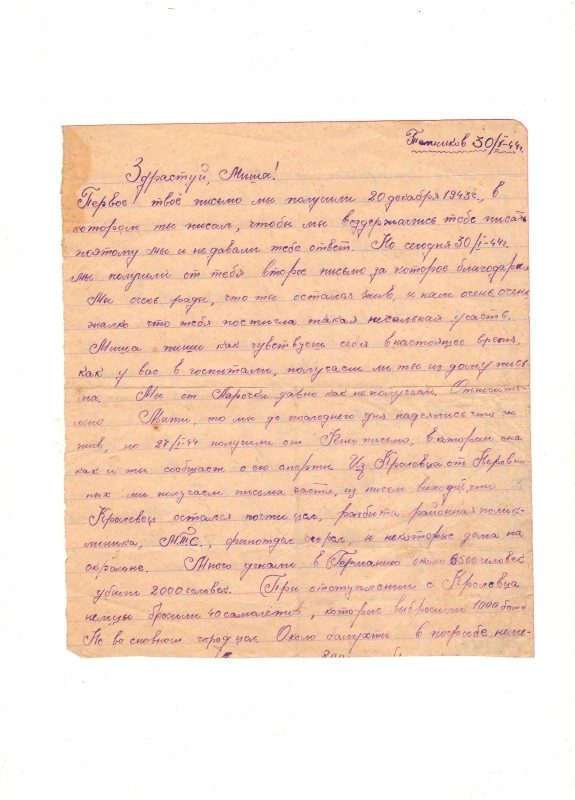 Темников 30/I-44г.
Здраствуй, Миша!
Первое твоё письмо мы получили 20 декабря 1943г., в
котором ты писал, чтобы мы воздержались тебе писать
поэтому мы и не давали тебе ответ. Но сегодня 30/I-44г.
мы получили от тебя второе письмо за которое благодарим
Мы очень рады, что ты остался жив, и нам очень очень
жалко что тебя постигла такая печальная участь.
Миша пиши как чувствуеш себя в настоящее время,
как у вас в госпитали, получаеш ли ты из дому пись
ма. Мы от Ларочки давно как не получаем. Относите-
льно Мити, то мы до последнего дня надеялись что он
жив, но 27/I-44 получили от письмо, в котором она
как и ты сообщает о его смерти. Из Кролевца от
ных мы получаем письма часто, из писем виходит, что
Кролевец остался почти цел, разбита районная поlik-
линика, МТС, финотдел сгорел, и некоторые дома на
окраине. Много угнали в Германию около 6500 человек
убили 2000 человек. При отступлении с Кролевца
немцы бросили 40 самолетов, которые выбросили 1000 бомб
Но во сновном город цел. Около в погребе неме-